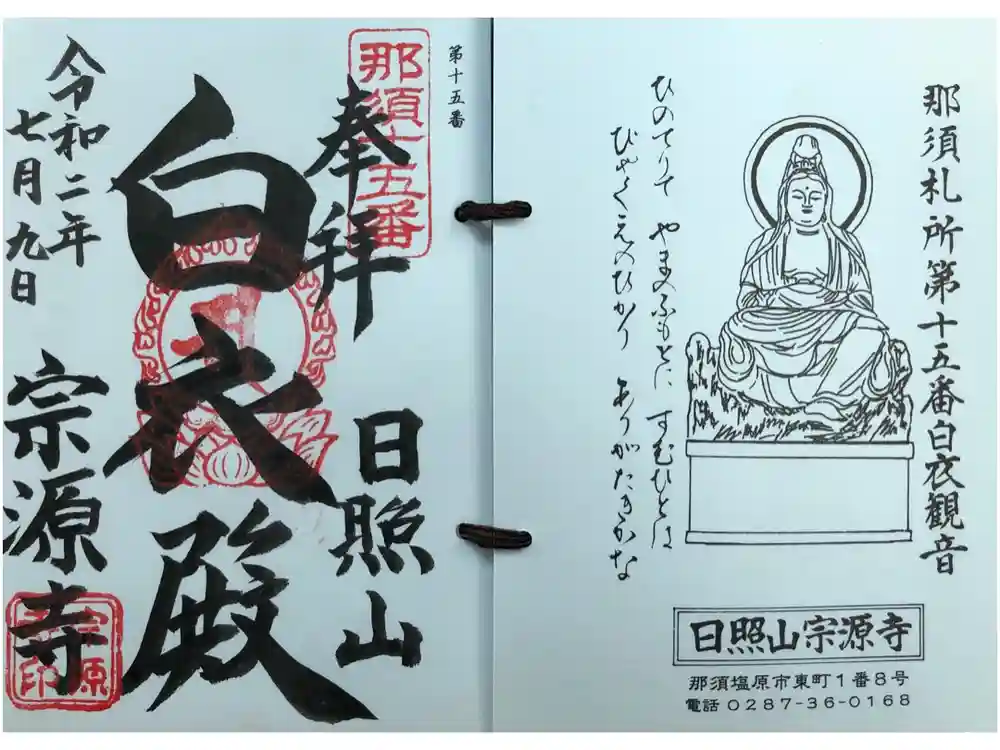 那須札所第十五番白衣観音
ひのてりて やまのふもとに すむひとは
びゃくえのひかり ありがたきかな
日照山宗源寺
那須塩原市東町1番8号
電話 0287-36-0168
第十五番
那須十五番
奉拝 日照山
白衣殿
令和二年
七月九日
宗源寺